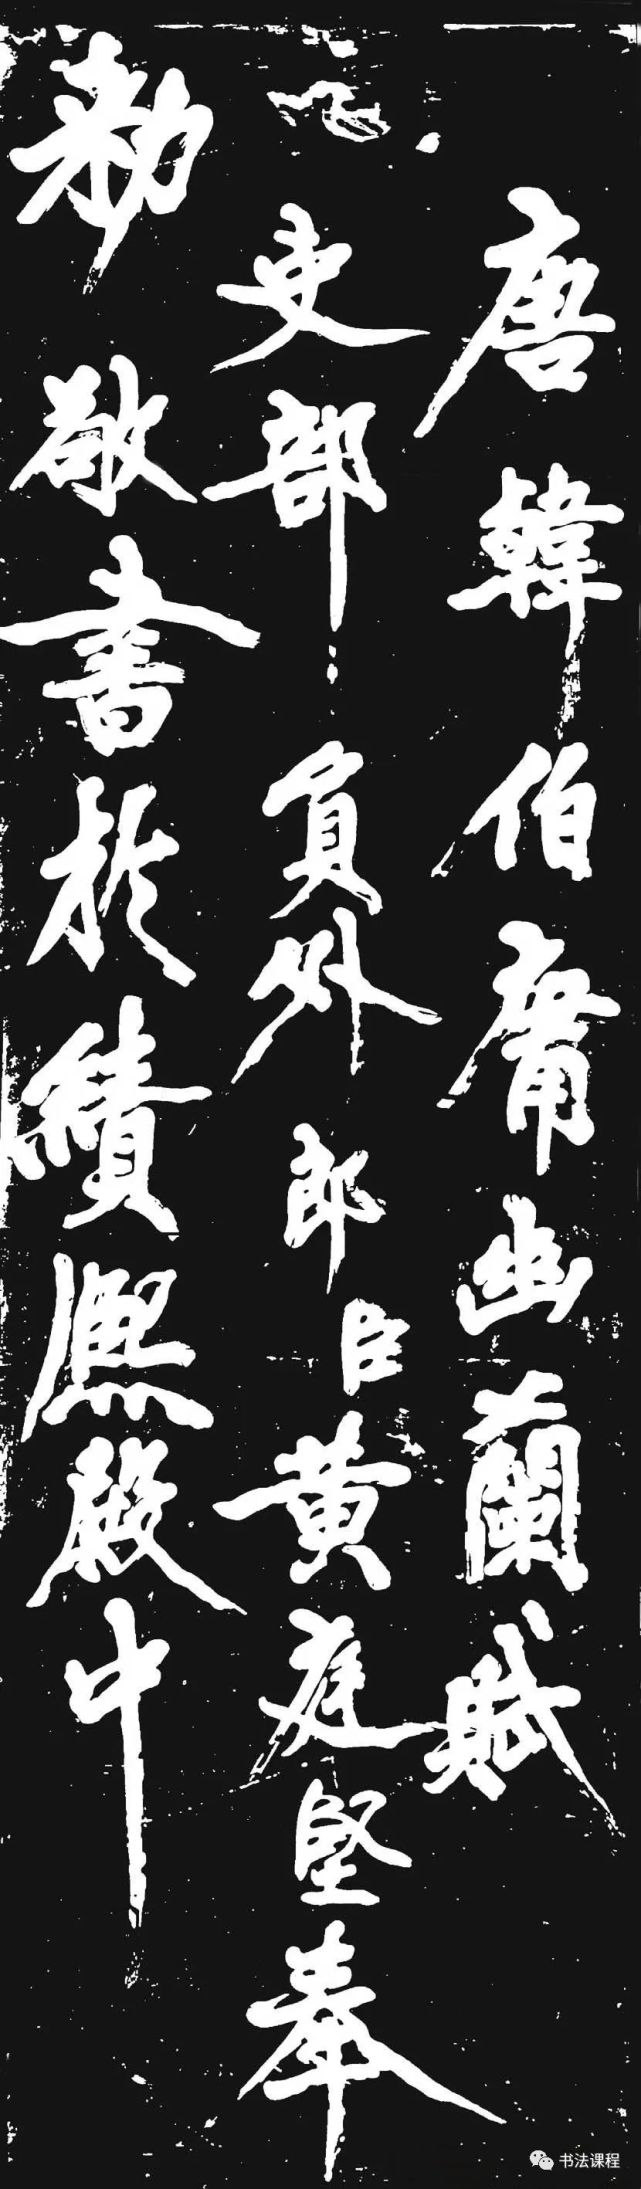 唐韓伯庸幽蘭賦
吏部員外郎臣黃庭堅奉
敕敬書於績熙殿中
书法课程